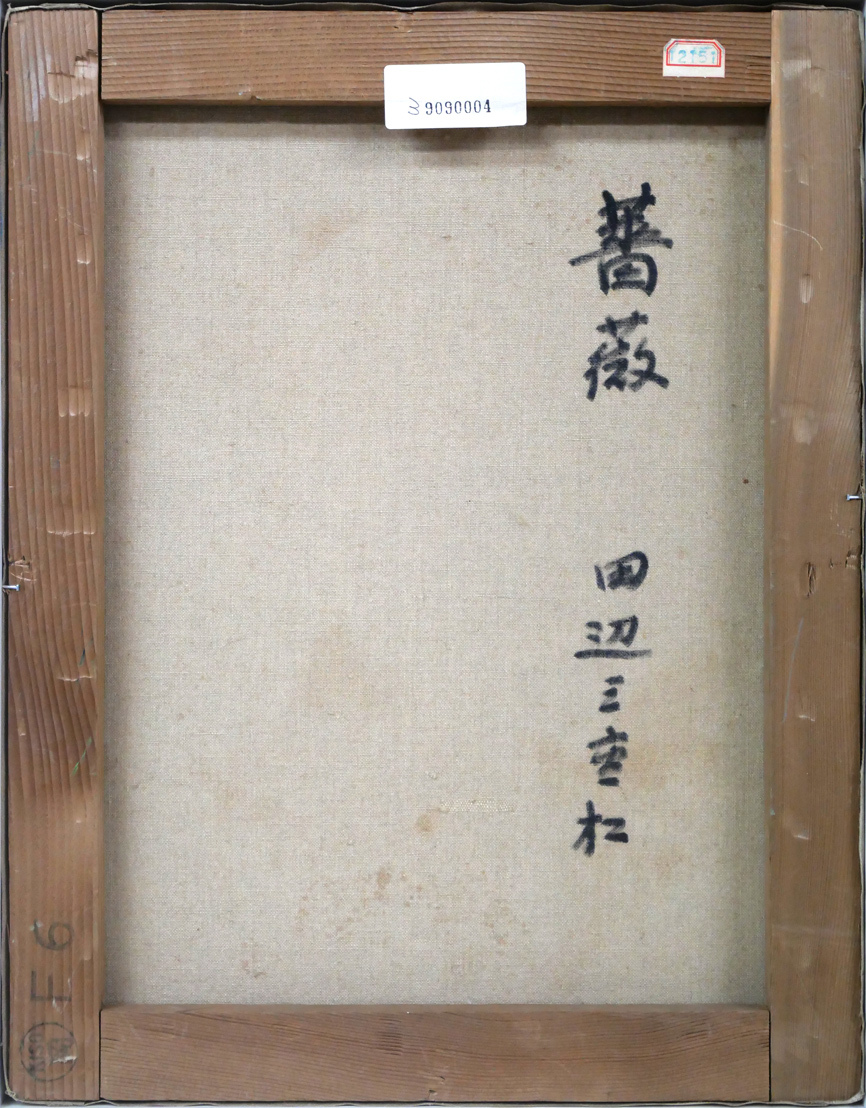 12151
3 9090004
薔薇 田辺三重松
F6